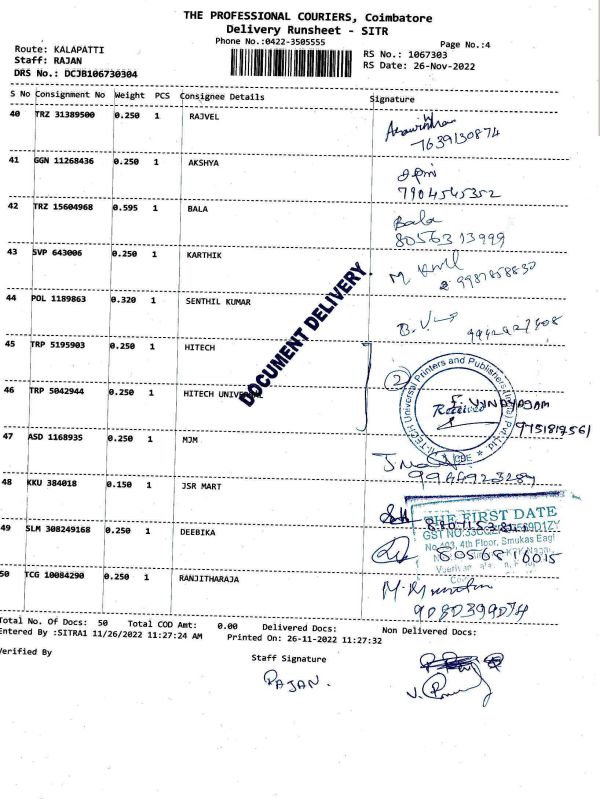 THE PROFESSIONAL COURIERS, Coimbatore
Delivery Runsheet - SITR
Phone No.:0422-3505555
Page No.:4
Route: KALAPATTI
RS No.: 1067303
Staff: RAJAN
RS Date: 26-Nov-2022
DRS No.: DCJB106730304
S No Consignment No Weight PCS Consignee Details Signature
40 TRZ 31389500 0.250 1 RAJVEL
7639130874
41 GGN 11268436 0.250 1 AKSHYA
7904545352
42 TRZ 15604968 0.595 1 BALA Bala
8056313999
43 SVP 643006 0.250 1 KARTHIK
44 POL 1189863 0.320 1 SENTHIL KUMAR
DOCUMENT DELIVERY.
45 TRP 5195903 0.250 1 HITECH
46 TRP 5042944 0.250 1 HITECH UNIVERSAL
2
HI-TECH Universal Printers and Publishers (India) Pvt. Ltd.
Received
9751817561
47 ASD 1168935 0.250 1 MJM
48 KKU 384018 0.150 1 JSR MART
THE FIRST DATE
No.403, 4th Floor, Smukas Eagl
49 SLM 308249168 0.250 1 DEEBIKA
8056816015
50 TCG 10084290 0.250 1 RANJITHARAJA
Total No. Of Docs: 50 Total COD Amt: 0.00 Delivered Docs: Non Delivered Docs:
Entered By :SITRA1 11/26/2022 11:27:24 AM Printed On: 26-11-2022 11:27:32
Verified By
Staff Signature
RAJAN.